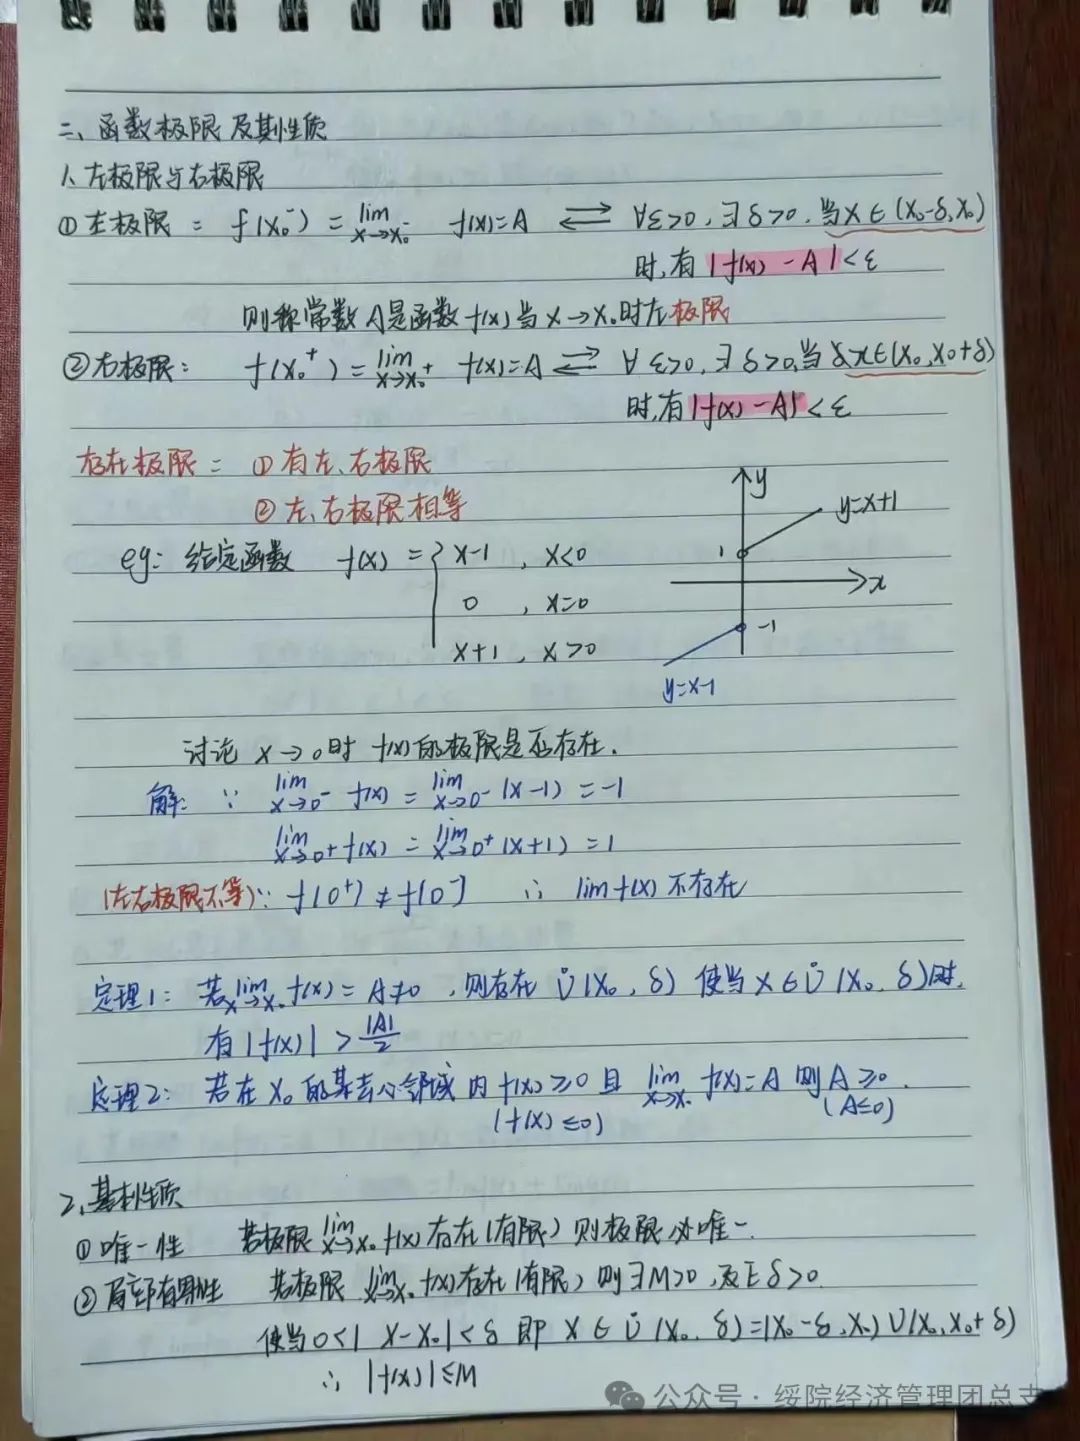 二、函数极限及其性质
1、左极限与右极限
①左极限 = f(x₀⁻) = lim x→x₀⁻ f(x)=A ⇌ ∀ε>0,∃δ>0,当x∈(x₀-δ,x₀)
时,有|f(x)-A|<ε
则称常数A是函数f(x)当x→x₀时左极限
②右极限: f(x₀⁺)=lim x→x₀⁺ f(x)=A ⇌ ∀ε>0,∃δ>0,当δx∈(x₀,x₀+δ)
时,有|f(x)-A|<ε
存在极限 = ①有左、右极限
②左、右极限相等
eg: 给定函数 f(x) = { x-1 , x<0
0 , x=0
x+1 , x>0
y
y=x+1
1
x
-1
y=x-1
讨论 x→0时 f(x)的极限是否存在.
解: ∵ lim x→0⁻ f(x) = lim x→0⁻ (x-1) = -1
lim x→0⁺ f(x) = lim x→0⁺ (x+1) = 1
(左右极限不等)∵ f(0⁺) ≠ f(0⁻) ∴ lim f(x) 不存在
定理1: 若 lim x→x₀ f(x) = A≠0 ,则存在 Ů(x₀,δ) 使当 x∈Ů(x₀,δ)时,
有|f(x)| > |A|/2
定理2: 若在x₀的某去心邻域内 f(x)≥0 且 lim x→x₀ f(x)=A 则A≥0.
(f(x)≤0) (A≤0)
2、基本性质
①唯一性 若极限 lim x→x₀ f(x)存在(有限)则极限必唯一.
②局部有界性 若极限 lim x→x₀ f(x)存在(有限)则∃M>0,及Eδ>0
使当0<|x-x₀|<δ 即 x∈Ů(x₀,δ)=(x₀-δ,x₀)∪(x₀,x₀+δ)
∴ |f(x)|≤M
公众号·绥院经济管理团总支